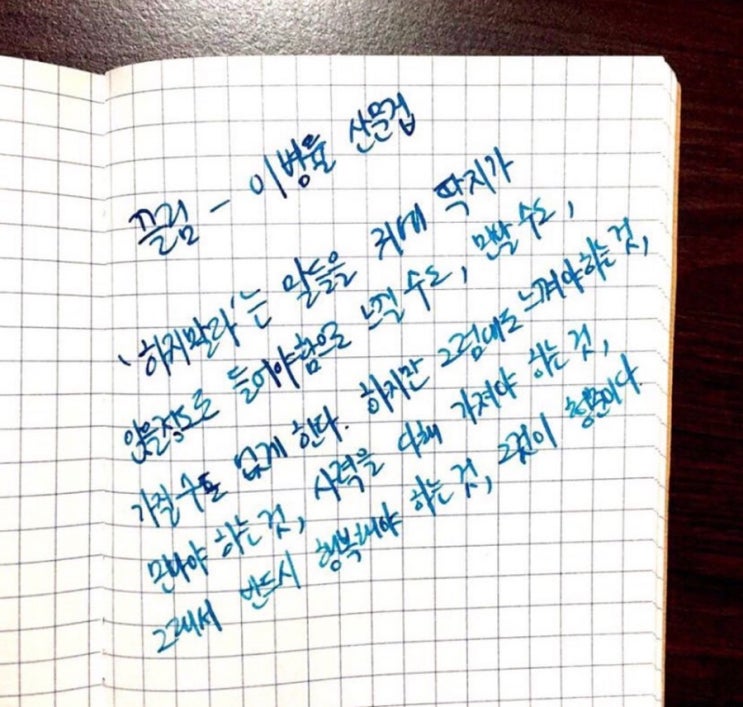 끌림 - 이병률 산문집
'하지말라'는 말들을 귀에 딱지가
앉을정도로 들어야함으로 느낄 수도, 만날 수도,
가질 수도 없게 한다. 하지만 그럼에도 느껴야하는 것,
만나야 하는 것, 사력을 다해 가져야 하는 것,
그래서 반드시 행복해야 하는 것, 그것이 청춘이다